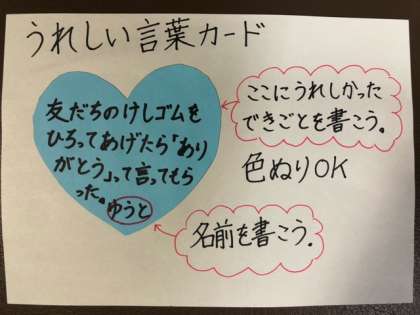 うれしい言葉カード
友だちのけしゴムを
ひろってあげたら「あり
がとう」って言ってもら
った。
ゆうと
ここにうれしかった
できごとを書こう。
色ぬりOK
名前を書こう。